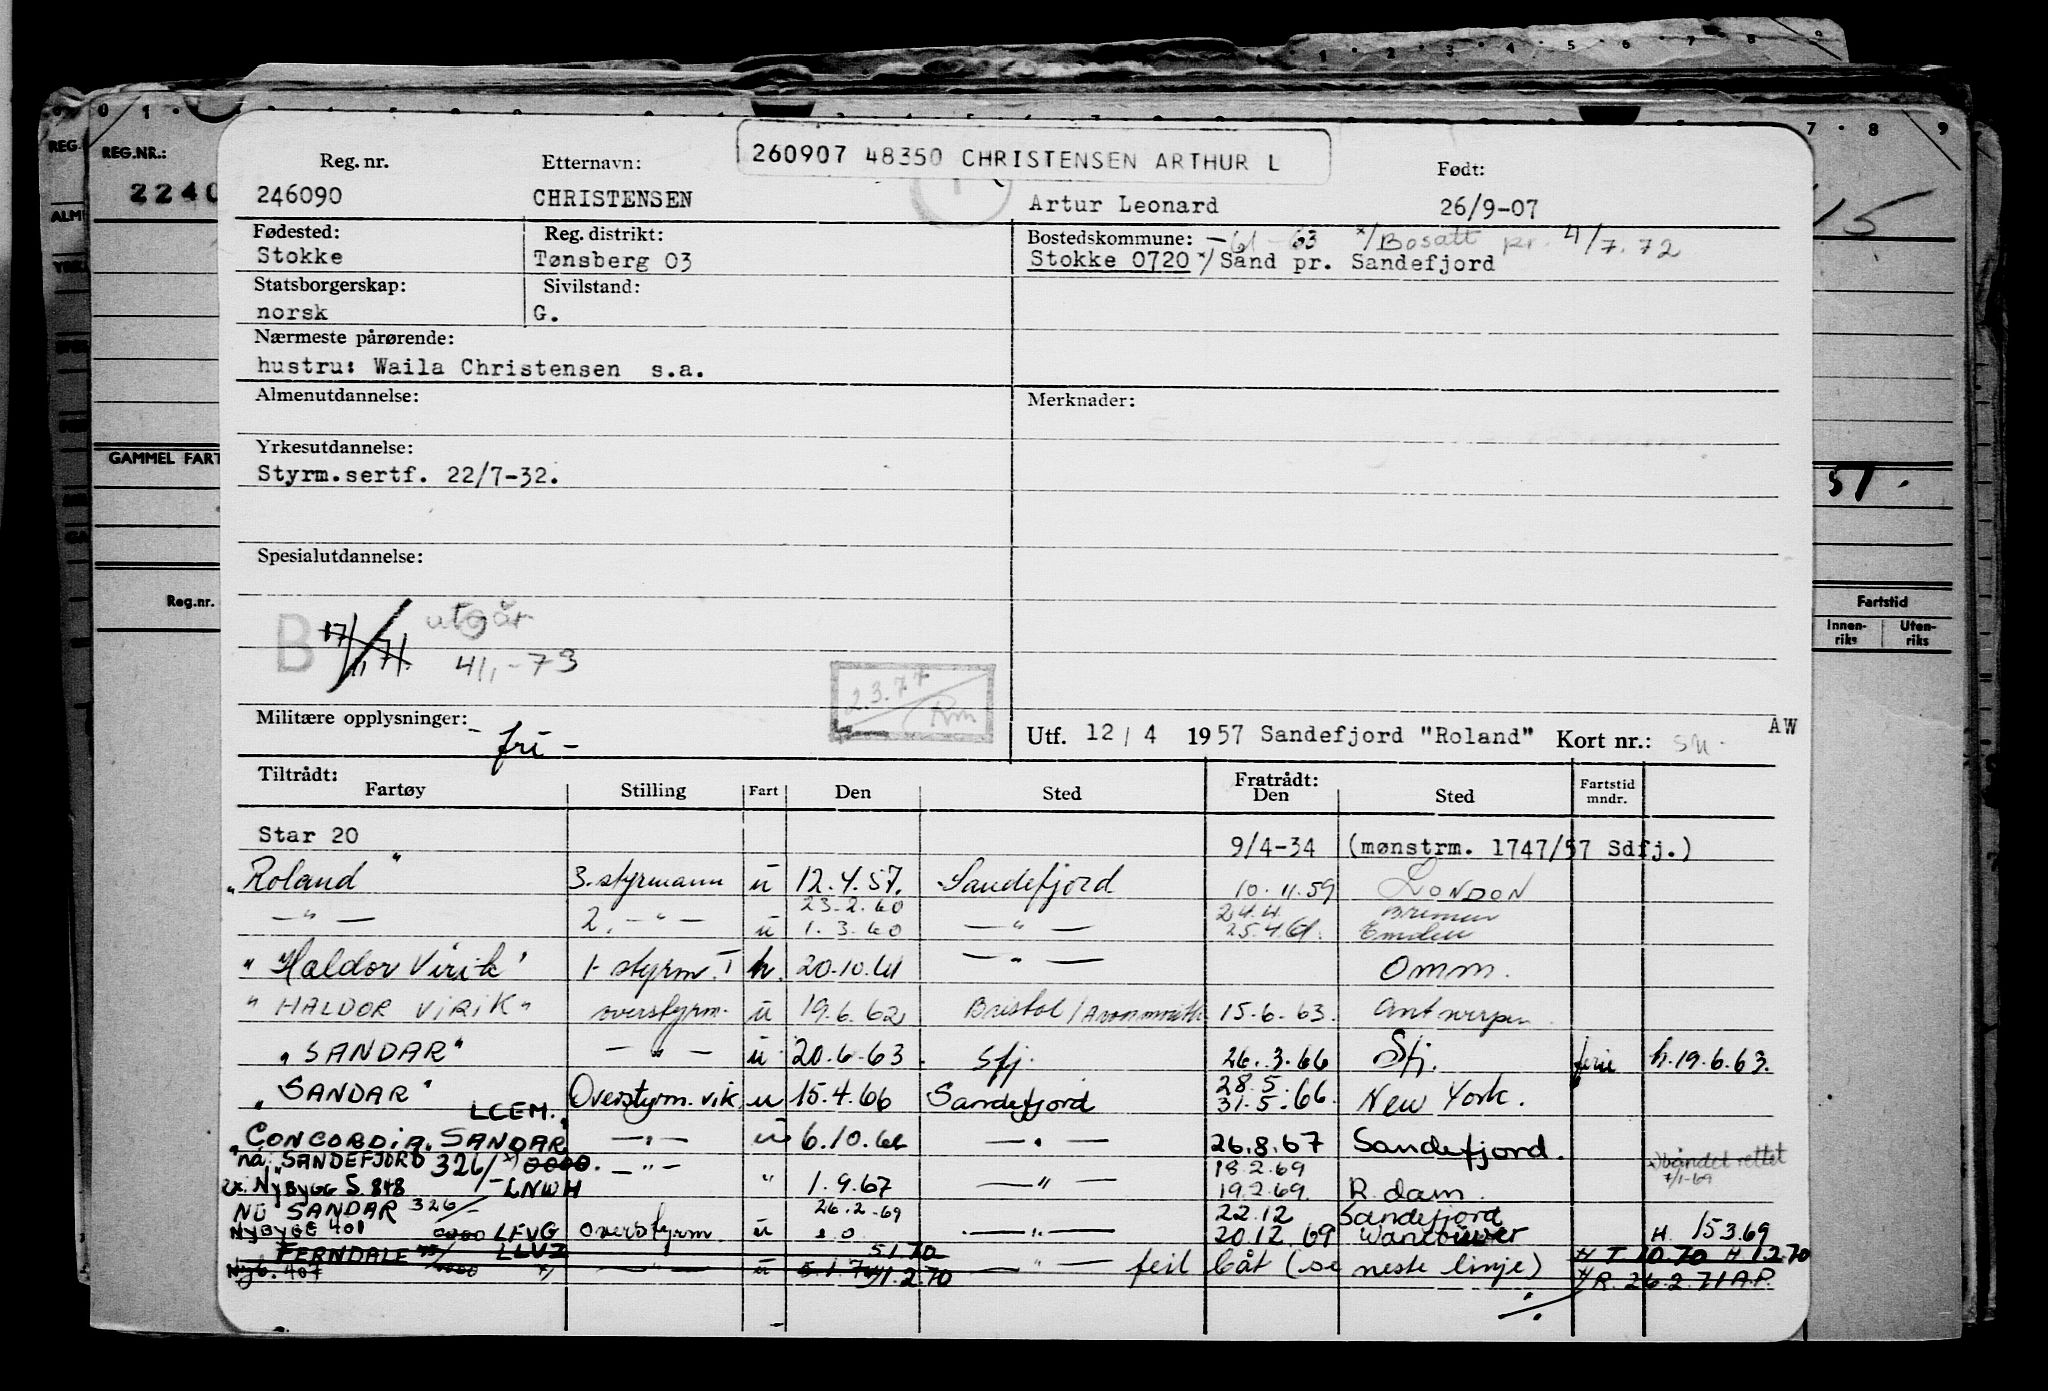 260907 48350 CHRISTENSEN ARTHUR L
Reg. nr. Etternavn: Født:
246090 CHRISTENSEN Artur Leonard 26/9-07
Fødested: Reg. distrikt: Bostedskommune: -61-63 x/Bosatt pr. 4/7.72
Stokke Tønsberg 03 Stokke 0720 x/Sand pr. Sandefjord
Statsborgerskap: Sivilstand:
norsk G.
Nærmeste pårørende:
hustru: Waila Christensen s.a.
Almenutdannelse: Merknader:
Yrkesutdannelse:
Styrm.sertf. 22/7-32.
Spesialutdannelse:
B 17/11.71. utgår
4/1,-73
2.3.77
Rm
Militære opplysninger: - fri -
Utf. 12 / 4 1957 Sandefjord "Roland" Kort nr.: AW
Tiltrådt: Fratrådt:
Fartøy Stilling Fart Den Sted Den Sted Fartstid mndr.
Star 20 9/4-34 (mønstrm. 1747/57 Sdfj.)
"Roland" 3. styrmann u 12.4.57. Sandefjord 10.11.59 LONDON
— " — 2. — " — 23.2.60 24.4 Bremen
u 1.3.60 — " — 25.4.61. Emden
"Haldor Virik" 1. styrm. I h. 20.10.61 — " — Omm.
"HALDOR VIRIK" overstyrm. u 19.6.62 Bristol/Avonmouth 15.6.63. Antwerpen
"SANDAR" — " — u 20.6.63. Sfj. 26.3.66 Sfj. ferie h.19.6.63.
"SANDAR" Overstyrm. vik u 15.4.66 Sandefjord 28.5. 31.5.66. New York.
LCEM.
"CONCORDIA SANDAR" — " — u 6.10.66 — " — 26.8.67 Sandefjord.
nå: SANDEFJORD 326/ x) 0000. — " — 18.2.69 x) båndet rettet
ex. NyBYGG S. 848 LNWH " 1.9.67 — " — 19.2.69. R.dam. 7/1-69
NÚ SANDAR 326/ 26.2.69 22.12 Sandefjord
NYBYGG 401 0000 LFVG overstyrm. u — " — 20.12.69 Vancouver H 15.3.69
FERNDALE LLVZ 5.1.70 H T 10.70 H 1.2.70
Nyb. 407 x/ — " — u 5.1.70 1.2.70 — " — feil båt (se neste linje) x/R. 26.2.71 A.P.
REG.NR.:
2240
GAMMEL FART
Reg.nr.
15
51.
Fartstid
Innen-
riks
Uten-
riks